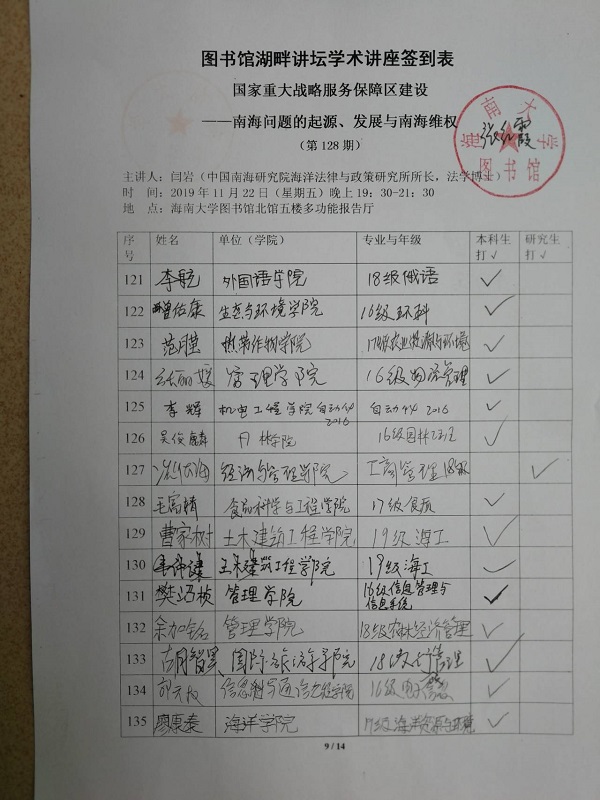 图书馆湖畔讲坛学术讲座签到表
国家重大战略服务保障区建设
——南海问题的起源、发展与南海维权
（第 128 期）
海南大学
图书馆
主讲人：闫岩（中国南海研究院海洋法律与政策研究所所长，法学博士）
时 间：2019 年 11 月 22 日（星期五）晚上 19：30-21：30
地 点：海南大学图书馆北馆五楼多功能报告厅
序号 姓名 单位（学院） 专业与年级 本科生打√ 研究生打√
121 李航 外国语学院 18级俄语 √
122 曾佑康 生态与环境学院 16级环科 √
123 热带作物学院 17级农业资源与环境 √
124 管理学院 16级物流管理 √
125 李辉 机电工程学院 自动化2016 自动化 2016 √
126 吴俊麟 林学院 16级园林 √
127 经济与管理学院 工商管理18级 √
128 毛富精 食品科学与工程学院 17级食质 √
129 曹家树 土木建筑工程学院 19级海工 √
130 土木建筑工程学院 19级海工 √
131 樊冯桢 管理学院 16级信息管理与信息系统 √
132 余加铭 管理学院 18级农林经济管理 √
133 胡智黑 国际旅游学院 18级 管理 √
134 信息科学通信工程学院 16级电子 √
135 廖康泰 海洋学院 17级海洋资源与环境 √
9 / 14